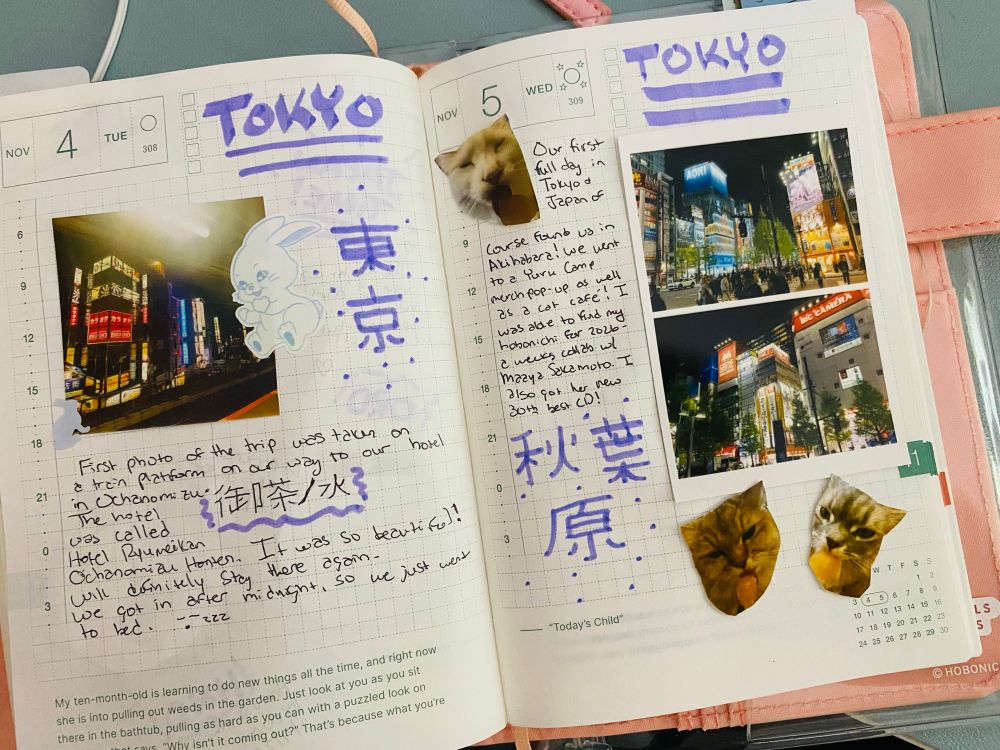 NOV 4 TUE 308
TOKYO
東
京
6
9
12
15
18
21
0
3
カラオケ
First photo of the trip was taken on
a train platform on our way to our hotel
in Ochanomizu. 御茶ノ水
The hotel
was called
Hotel Ryumeikan
Ochanomizu Honten. It was so beautiful!
Will definitely stay there again.
We got in after midnight, so we just went
to bed. zzz
My ten-month-old is learning to do new things all the time, and right now
she is into pulling out weeds in the garden. Just look at you as you sit
there in the bathtub, pulling as hard as you can with a puzzled look on
that says, "Why isn't it coming out?" That's because what you're
NOV 5 WED 309
TOKYO
Our first
full day in
Tokyo &
Japan of
course found us in
Akihabara! We went
to a Yuru Camp
merch pop-up as well
as a cat cafe! I
was able to find my
hobonichi for 2026-
a weeks collab w/
Maaya Sakamoto. I
also got her new
30th best CD!
9
12
15
18
21
0
3
秋葉
原
AOKI
BIC CAMERA
1
— "Today's Child"
W T F S S
1 2
3 4 5 6 7 8 9
10 11 12 13 14 15 16
17 18 19 20 21 22 23
24 25 26 27 28 29 30
LS
S
© HOBONIC